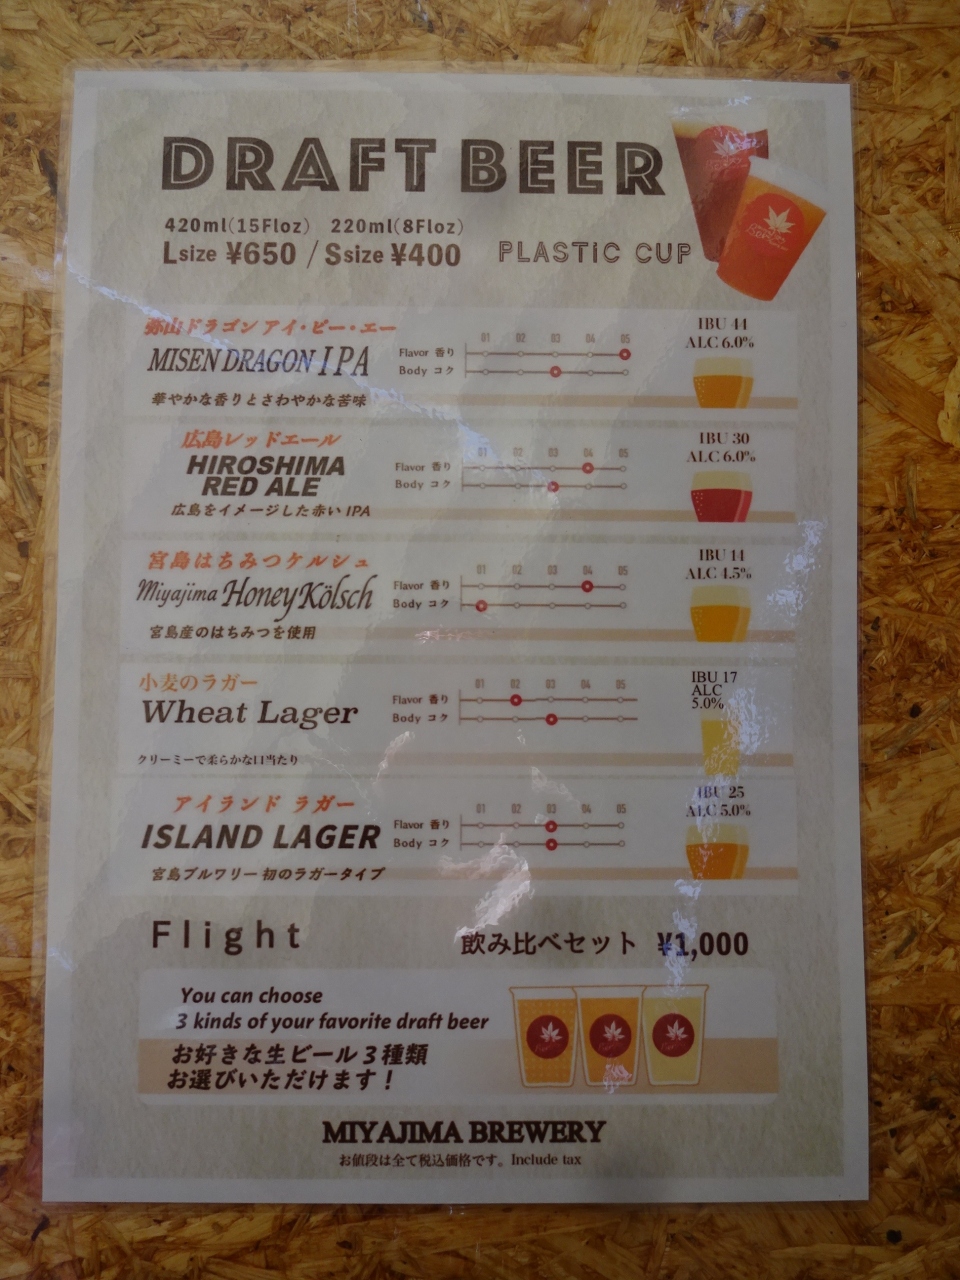 DRAFT BEER
420ml(15Floz) 220ml(8Floz)
Lsize ¥650 / Ssize ¥400
PLASTIC CUP
弥山ドラゴン アイ・ピー・エー
MISEN DRAGON IPA
華やかな香りとさわやかな苦味
01 02 03 04 05
Flavor 香り
Body コク
IBU 44
ALC 6.0%
広島レッドエール
HIROSHIMA
RED ALE
広島をイメージした赤い IPA
01 02 03 04 05
Flavor 香り
Body コク
IBU 30
ALC 6.0%
宮島はちみつケルシュ
Miyajima Honey Kölsch
宮島産のはちみつを使用
01 02 03 04 05
Flavor 香り
Body コク
IBU 14
ALC 4.5%
小麦のラガー
Wheat Lager
クリーミーで柔らかな口当たり
01 02 03 04 05
Flavor 香り
Body コク
IBU 17
ALC
5.0%
アイランド ラガー
ISLAND LAGER
宮島ブルワリー 初のラガータイプ
01 02 03 04 05
Flavor 香り
Body コク
IBU 25
ALC 5.0%
Flight
飲み比べセット ¥1,000
You can choose
3 kinds of your favorite draft beer
お好きな生ビール3種類
お選びいただけます！
MIYAJIMA BREWERY
お値段は全て税込価格です。Include tax